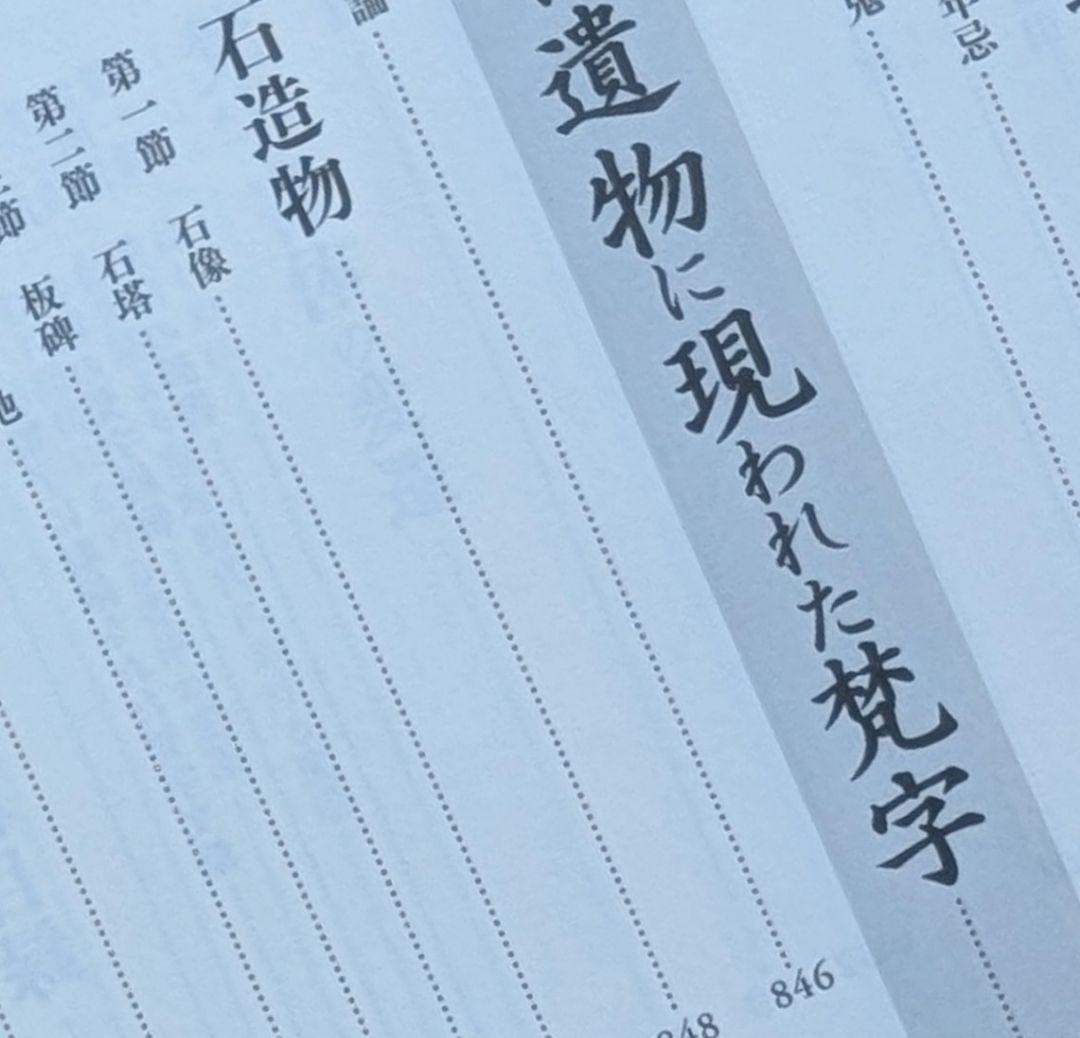 年忌
遺物に現われた梵字
論 846
石造物 848
第一節 石像
第二節 石塔
節 板碑